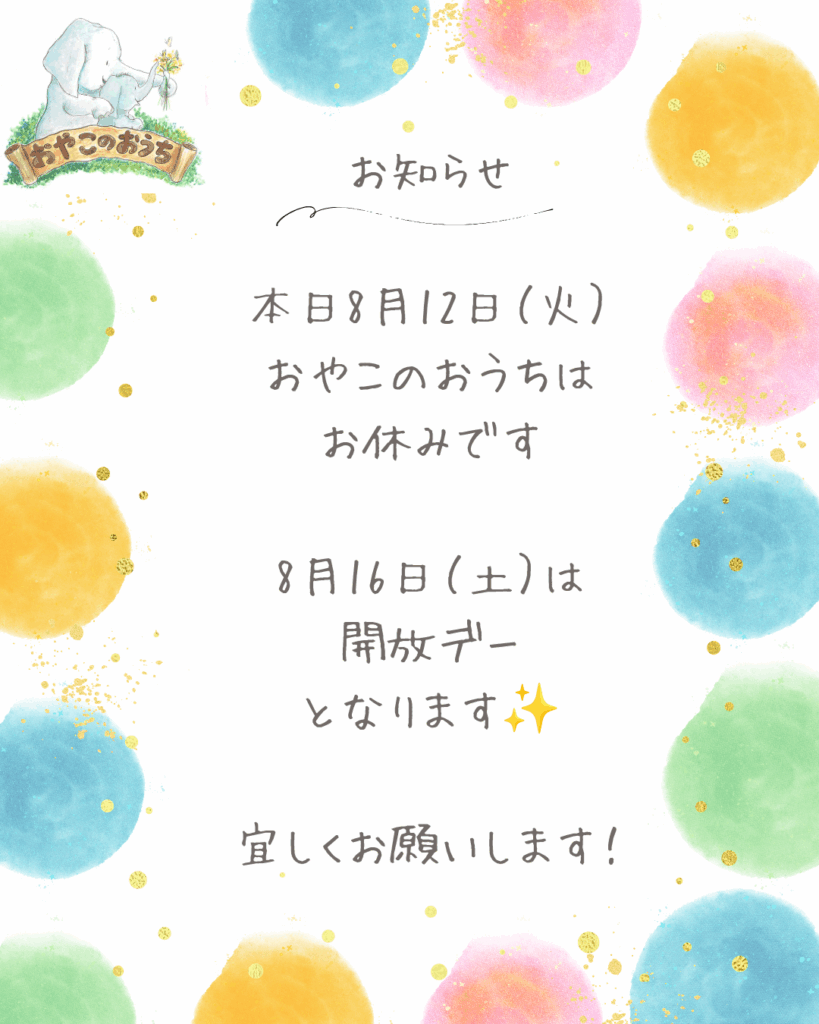 おやこのおうち
お知らせ
本日8月12日(火)
おやこのおうちは
お休みです
8月16日(土)は
開放デー
となります✨
宜しくお願いします!